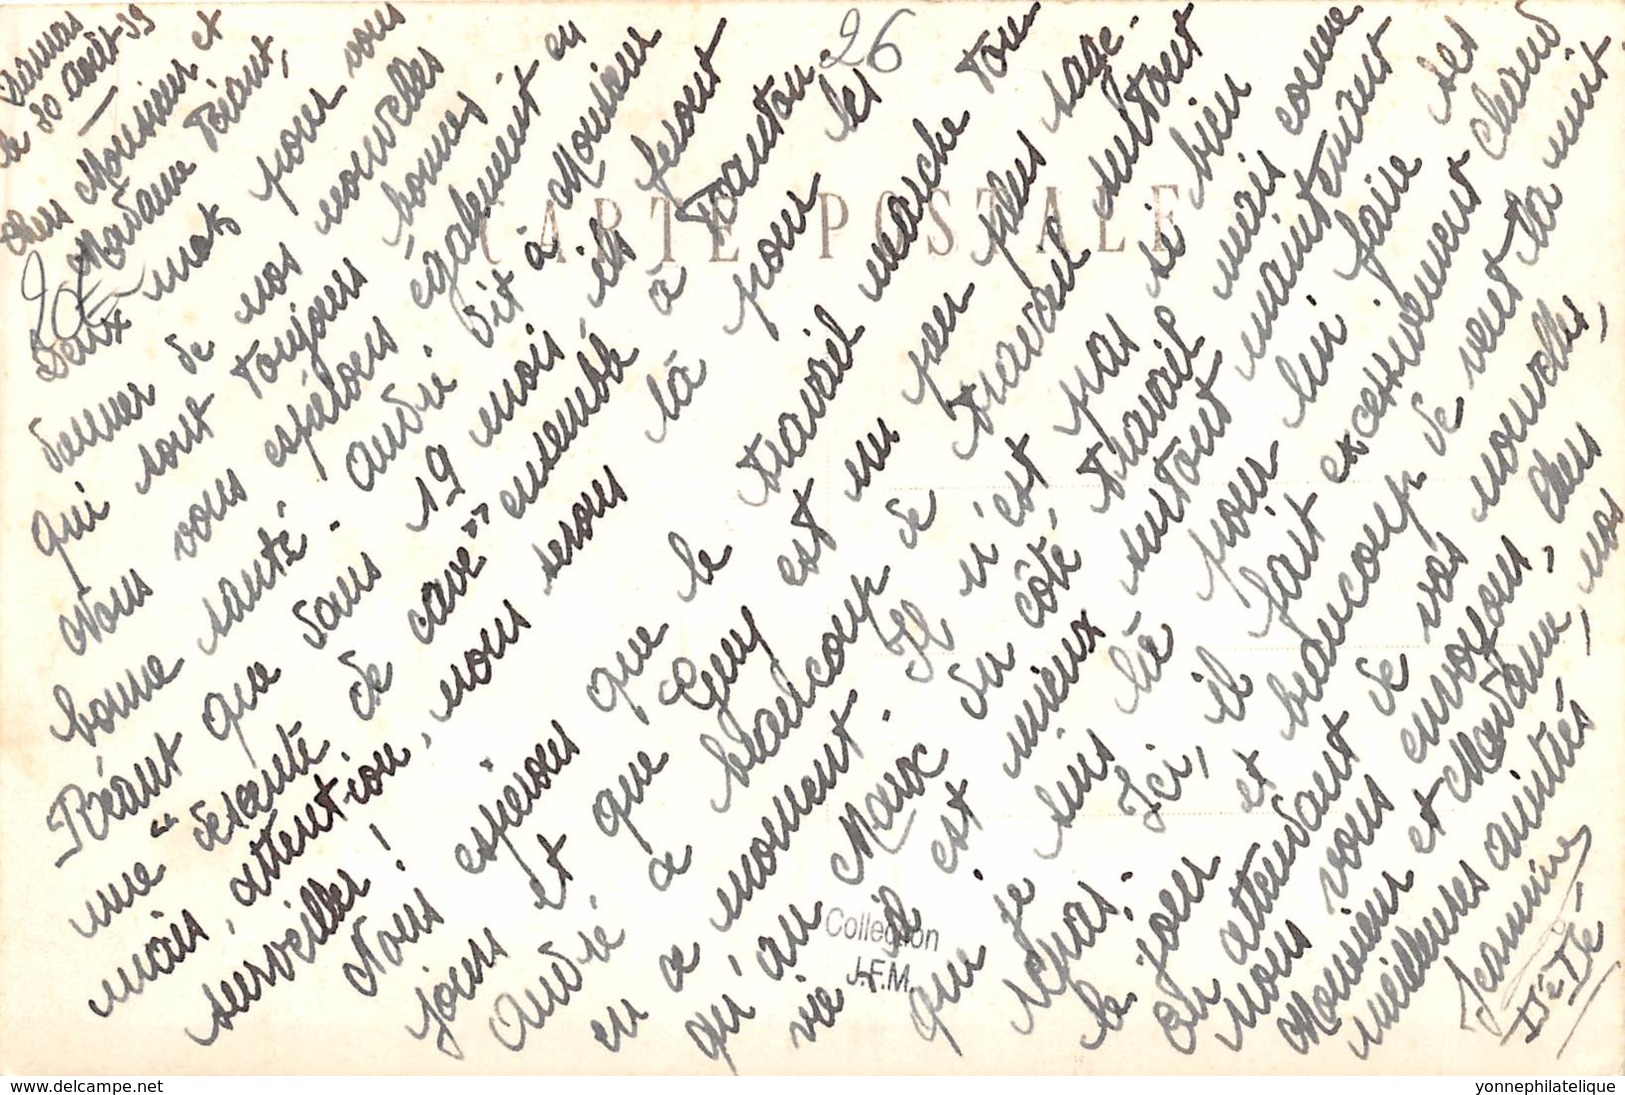 Damas
le 30 août 39
Chers Monsieur et
Madame Préant,
Deux mots pour vous
donner de nos nouvelles
qui sont toujours bonnes
Nous vous espérons également en
bonne santé. André dit à Monsieur
Préant que dans 19 mois ils feront
une "descente de cave" ensemble à Tonton
mais, attention, nous serons là pour les
surveiller !
Nous espérons que le travail marche tou-
jours et que Guy est un peu plus sage.
André a beaucoup de travail surtout
en ce moment. Il n'est pas si bien
qu'au Maux du côté travail mais comme
vie il est mieux surtout maintenant
que je suis là pour lui faire ses
repas. Ici, il fait excessivement chaud
le jour et beaucoup de vent la nuit.
En attendant de vos nouvelles,
nous vous envoyons, chers
Monsieur et Madame, nos
meilleures amitiés
Jeannine
26
CARTE POSTALE
Collection
J.F.M.
www.delcampe.net
yonnephilatelique